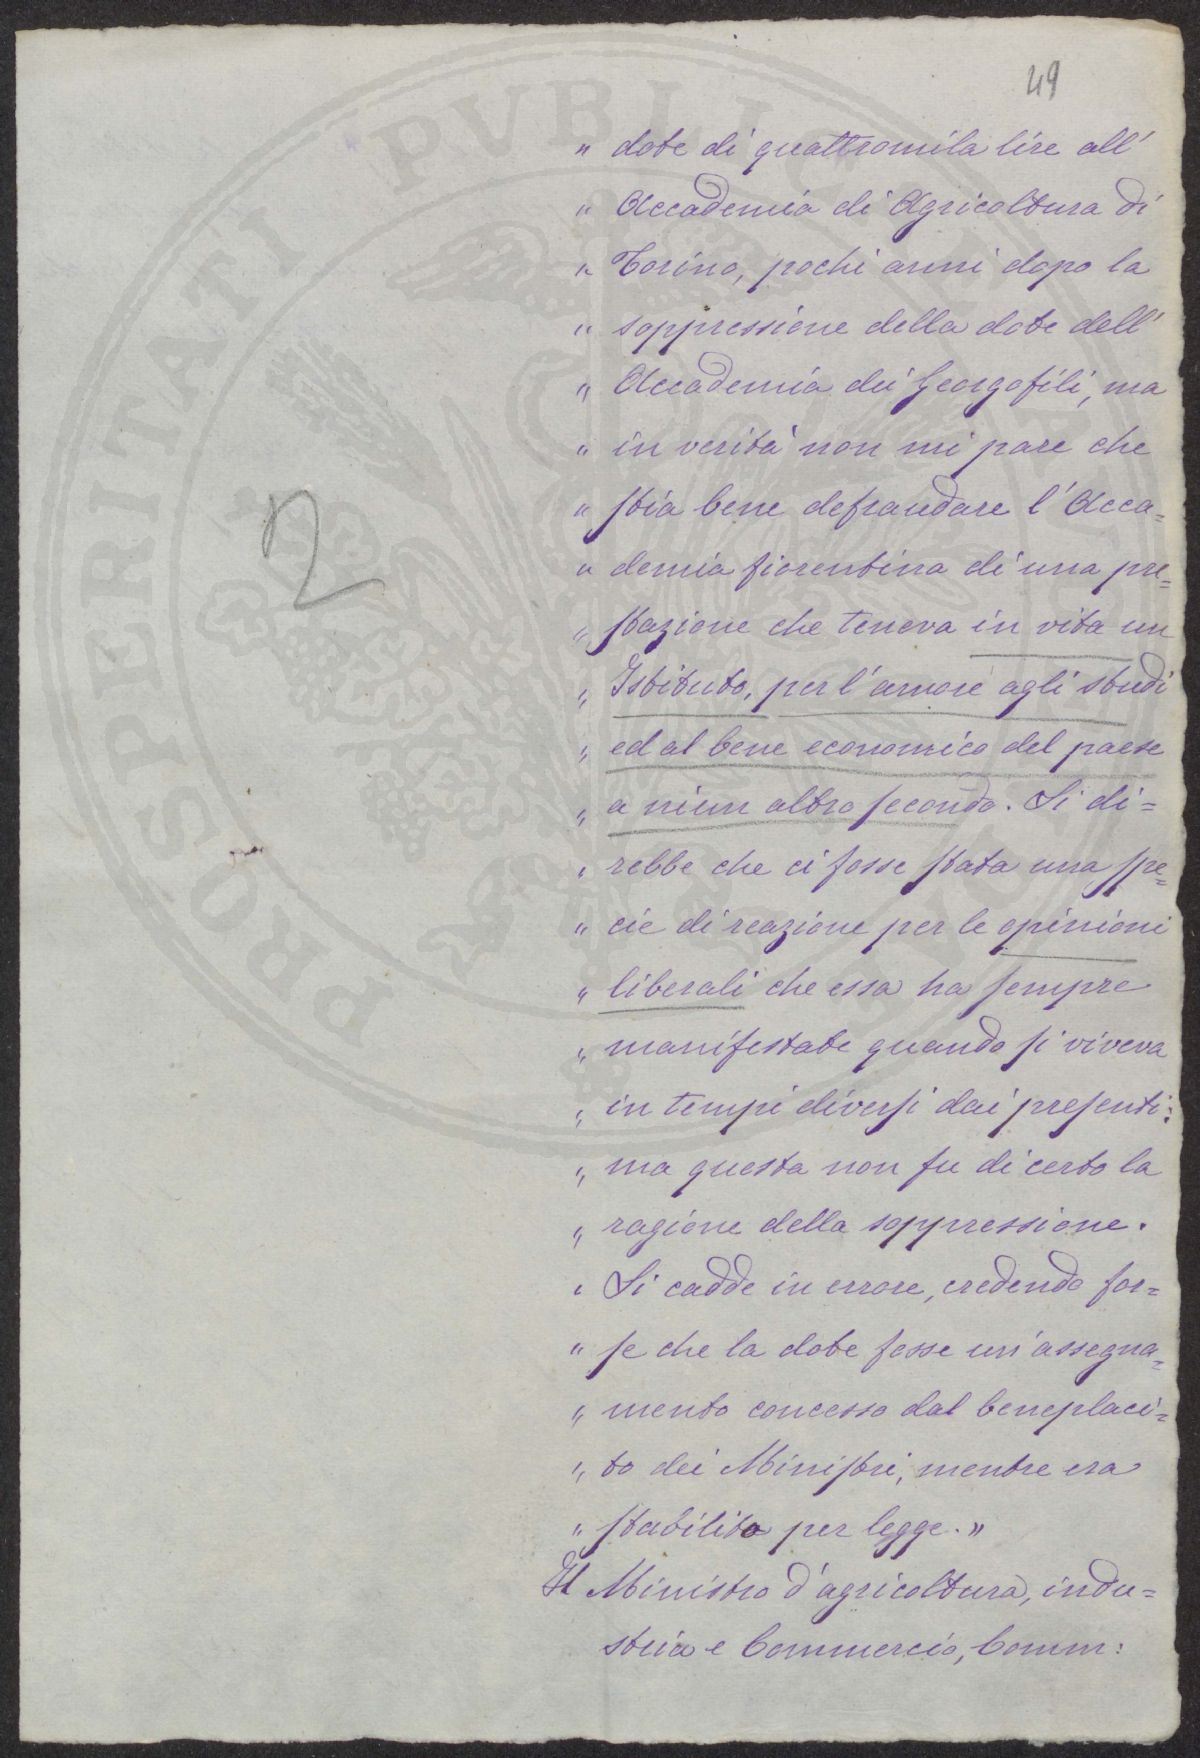 49
PROSPERITATI PVBLICAE
" dote di quattromila lire all'
" Accademia di Agricoltura di
" Torino, pochi anni dopo la
" soppressione della dote dell'
" Accademia dei Georgofili, ma
" in verità non mi pare che
" stia bene defraudare l'Acca=
" demia fiorentina di una pre=
" stazione che teneva in vita un
" Istituto, per l'amore agli studi
" ed al bene economico del paese
" a niun altro secondo. Si di=
" rebbe che ci fosse stata una spe=
" cie di reazione per le opinioni
" liberali che essa ha sempre
" manifestate quando si viveva
" in tempi diversi dai presenti:
" ma questa non fu di certo la
" ragione della soppressione.
" Si cadde in errore, credendo for=
" se che la dote fosse un'assegna=
" mento concesso dal beneplaci=
" to dei Ministri, mentre era
" stabilita per legge."
Il Ministro d'agricoltura, indu=
stria e Commercio, Comm:
2